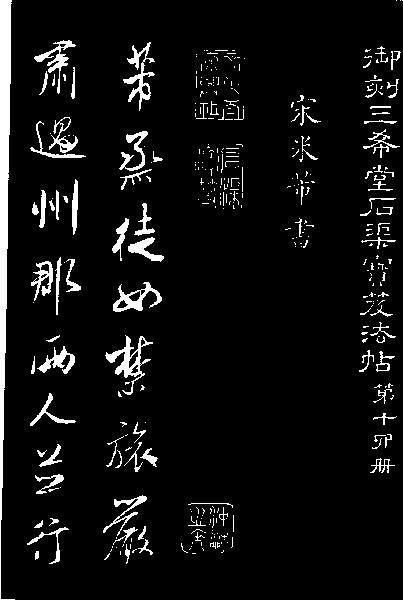 御刻三希堂石渠寶笈法帖 第十四册
宋米芾書
芾烝徒如禁旅嚴
肅過州郡兩人並行